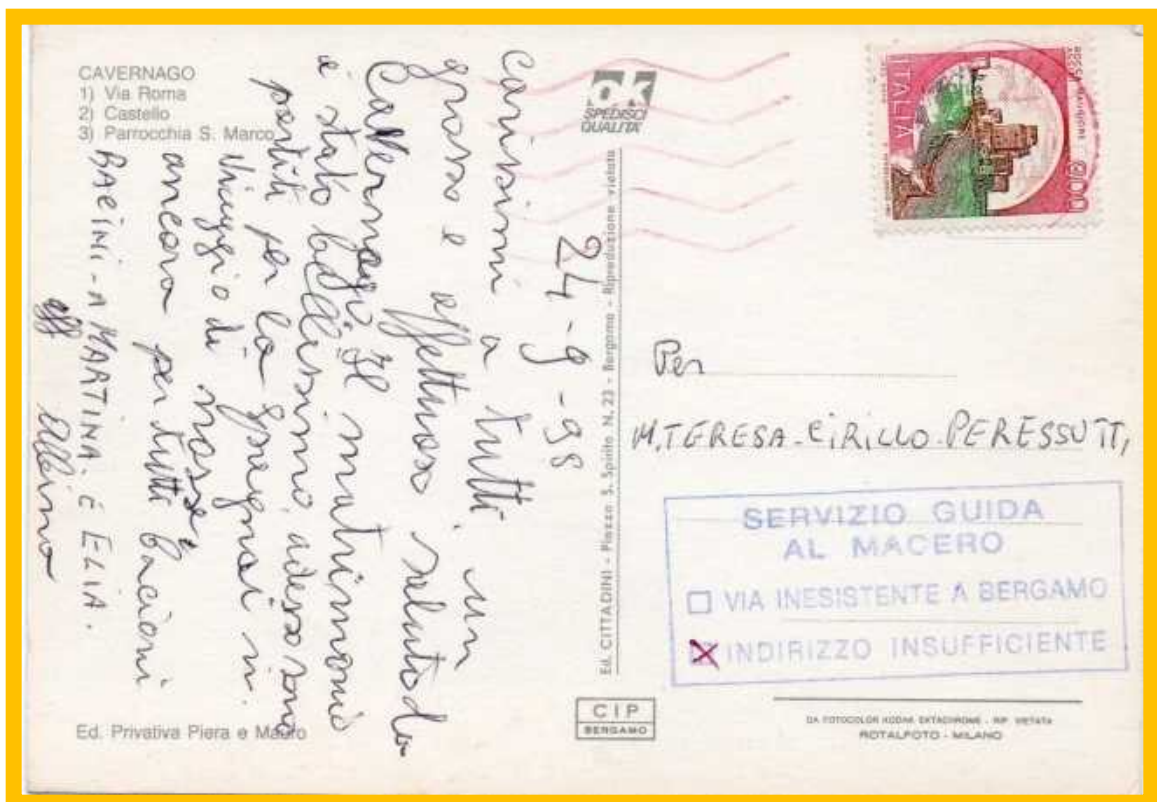 CAVERNAGO
1) Via Roma
2) Castello
3) Parrocchia S. Marco
24-9-98
Carissimi a tutti, un
grosso e affettuoso saluto da
Cavernago. Il matrimonio
è stato bellissimo, adesso sono
partiti per la Spagna in
viaggio di nozze
ancora per tutti bacioni
BACINI-A MARTINA. E ELIA.
aff Albino
Ed. Privativa Piera e Mauro
SPEDISCI
QUALITÀ
Ed. CITTADINI - Piazza S. Spirito N. 23 - Bergamo - Riproduzione vietata
CIP
BERGAMO
ITALIA
Per
M.TERESA-CIRILLO-PERESSUTTI,
SERVIZIO GUIDA
AL MACERO
VIA INESISTENTE A BERGAMO
INDIRIZZO INSUFFICIENTE
DA FOTOCOLOR KODAK EKTACHROME - RIP. VIETATA
ROTALFOTO - MILANO